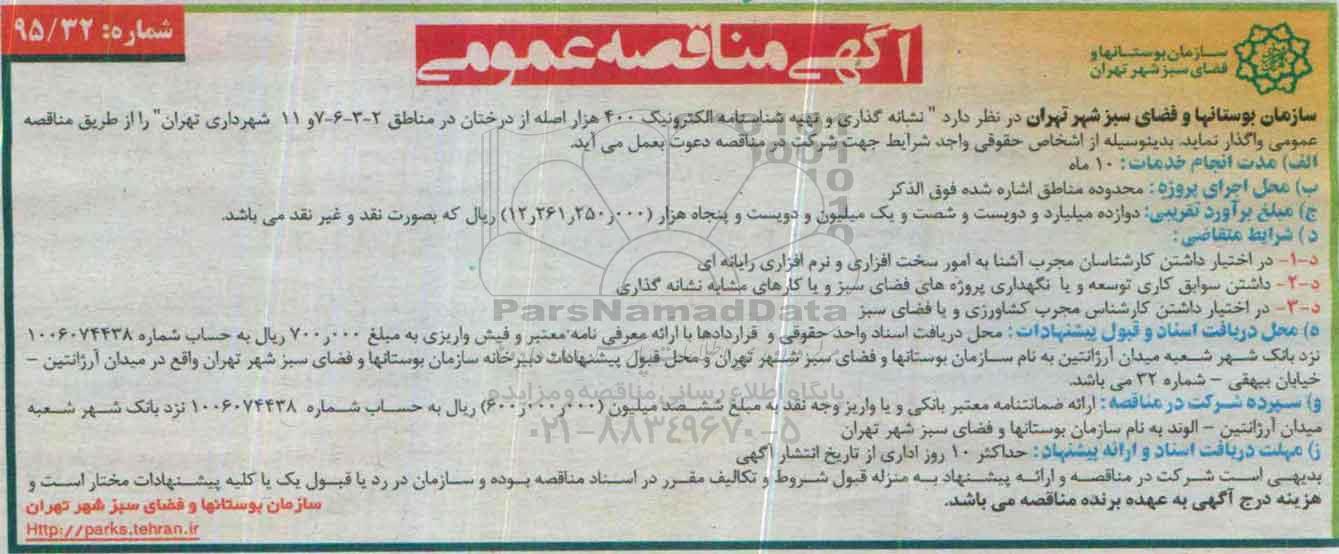 شماره: ۹۵/۳۲
آگهی مناقصه عمومی
سازمان بوستانها و
فضای سبز شهر تهران
سازمان بوستانها و فضای سبز شهر تهران در نظر دارد " نشانه گذاری و تهیه شناسنامه الکترونیک ۴۰۰ هزار اصله از درختان در مناطق ۲-۳-۶-۷و ۱۱ شهرداری تهران" را از طریق مناقصه
عمومی واگذار نماید. بدینوسیله از اشخاص حقوقی واجد شرایط جهت شرکت در مناقصه دعوت بعمل می آید.
الف) مدت انجام خدمات: ۱۰ ماه
ب) محل اجرای پروژه: محدوده مناطق اشاره شده فوق الذکر
ج) مبلغ برآورد تقریبی: دوازده میلیارد و دویست و شصت و یک میلیون و دویست و پنجاه هزار (۱۲٫۲۶۱٫۲۵۰٫۰۰۰) ریال که بصورت نقد و غیر نقد می باشد.
د) شرایط متقاضی:
د-۱- در اختیار داشتن کارشناسان مجرب آشنا به امور سخت افزاری و نرم افزاری رایانه ای
د-۲- داشتن سوابق کاری توسعه و یا نگهداری پروژه های فضای سبز و یا کارهای مشابه نشانه گذاری
د-۳- در اختیار داشتن کارشناس مجرب کشاورزی و یا فضای سبز
ه) محل دریافت اسناد و قبول پیشنهادات: محل دریافت اسناد واحد حقوقی و قراردادها با ارائه معرفی نامه معتبر و فیش واریزی به مبلغ ۷۰۰٫۰۰۰ ریال به حساب شماره ۱۰۰۶۰۷۴۴۳۸
نزد بانک شهر شعبه میدان آرژانتین به نام سازمان بوستانها و فضای سبز شهر تهران و محل قبول پیشنهادات دبیرخانه سازمان بوستانها و فضای سبز شهر تهران واقع در میدان آرژانتین –
خیابان بیهقی – شماره ۳۲ می باشد.
و) سپرده شرکت در مناقصه: ارائه ضمانتنامه معتبر بانکی و یا واریز وجه نقد به مبلغ ششصد میلیون (۶۰۰٫۰۰۰٫۰۰۰) ریال به حساب شماره ۱۰۰۶۰۷۴۴۳۸ نزد بانک شهر شعبه
میدان آرژانتین – الوند به نام سازمان بوستانها و فضای سبز شهر تهران
ز) مهلت دریافت اسناد و ارائه پیشنهاد: حداکثر ۱۰ روز اداری از تاریخ انتشار آگهی
بدیهی است شرکت در مناقصه و ارائه پیشنهاد به منزله قبول شروط و تکالیف مقرر در اسناد مناقصه بوده و سازمان در رد یا قبول یک یا کلیه پیشنهادات مختار است و
هزینه درج آگهی به عهده برنده مناقصه می باشد.
سازمان بوستانها و فضای سبز شهر تهران
Http://parks.tehran.ir
ParsNamadData
پایگاه اطلاع رسانی مناقصه و مزایده
۰۲۱-۸۸۳۴۹۶۷۰-۵